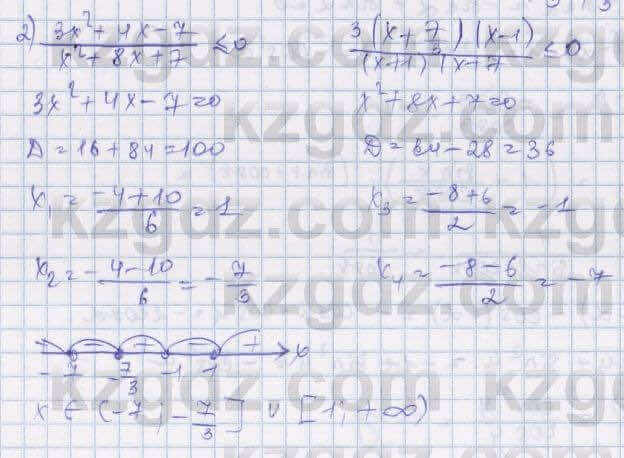 2) (3x² + 4x - 7)/(x² + 8x + 7) ≤ 0    3(x + 7/3)(x - 1)/((x+1)(x+7) ≤ 0
3x² + 4x - 7 = 0    x² + 8x + 7 = 0
D = 16 + 84 = 100    D = 64 - 28 = 36
x₁ = (-4 + 10)/6 = 1    x₃ = (-8 + 6)/2 = -1
x₂ = (-4 - 10)/6 = -7/3    x₄ = (-8 - 6)/2 = -7
+ - + - + x
-7 -7/3 -1 1
x ∈ (-7; -7/3] ∪ [1; +∞)
kzgdz.com